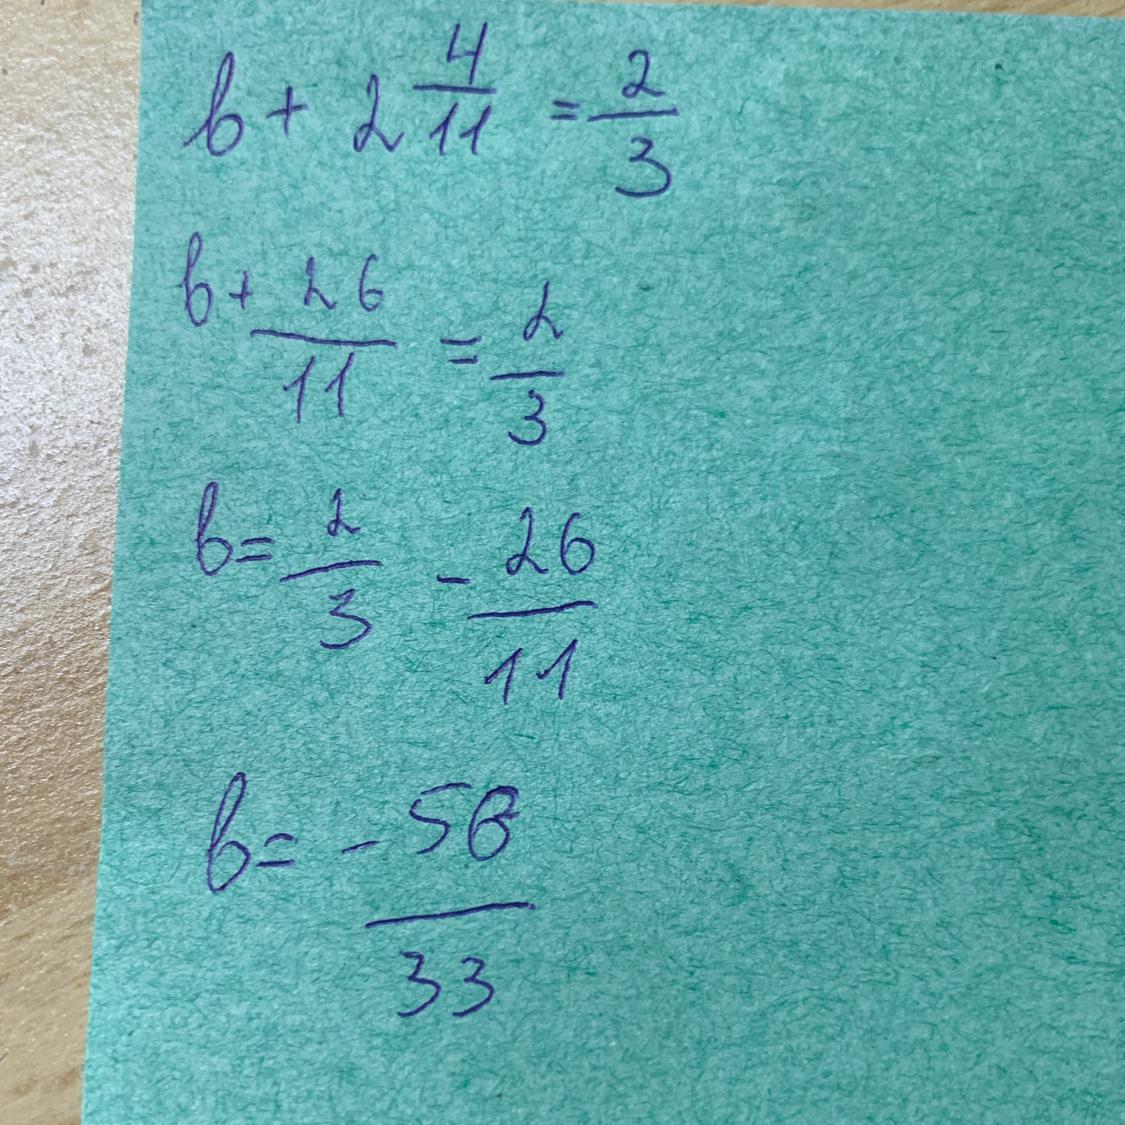 b + 2 4/11 = 2/3
b + 26/11 = 2/3
b = 2/3 - 26/11
b = - 56/33